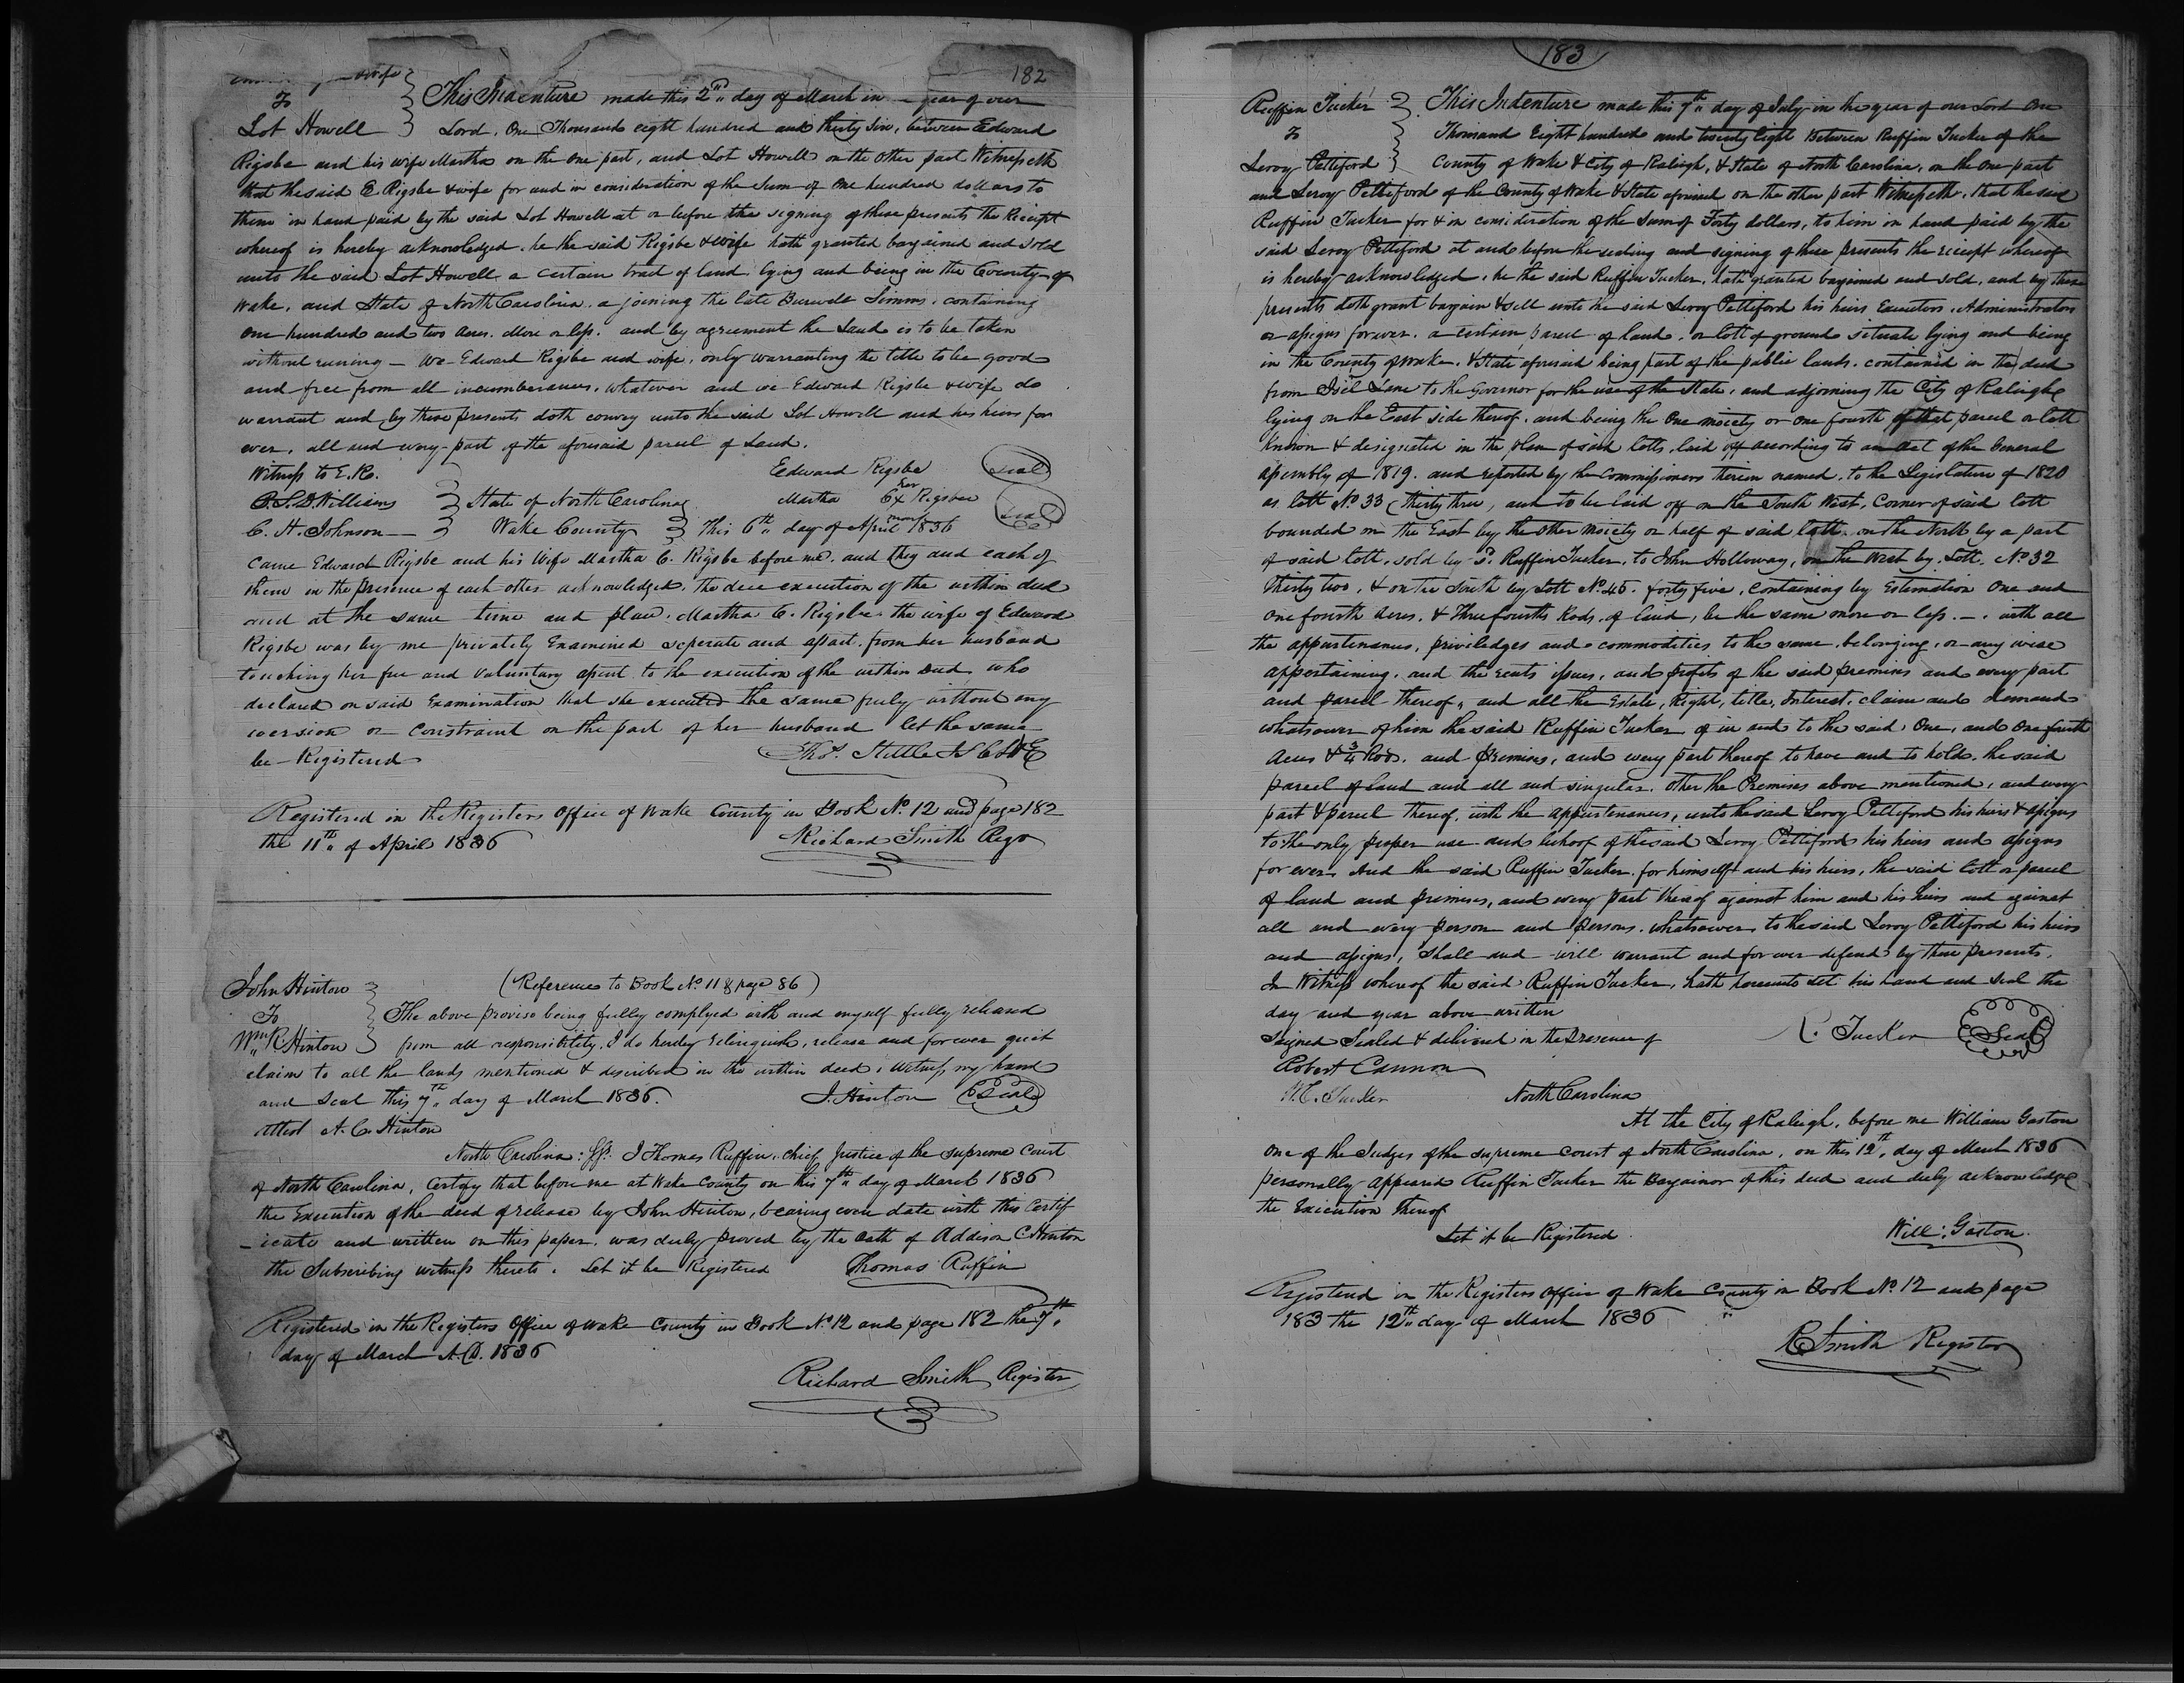 182
wife
To
Lot Howell
This Indenture made this 2nd day of March in year of our
Lord, One Thousand eight hundred and thirty Six, between Edward
Rigsbe and his wife Martha on the one part, and Lot Howell on the other part Witnesseth
that the said E. Rigsbe & wife for and in consideration of the Sum of One hundred dollars to
them in hand paid by the said Lot Howell at or before the signing of these presents the Receipt
whereof is hereby acknowledged. he the said Rigsbe & wife hath granted bargained and sold
unto the said Lot Howell a certain tract of land, lying and being in the County of
Wake, and State of North Carolina. a joining the late Burwell Simms, containing
One hundred and two acres. More or less. and by agreement the Land is to be taken
without runing — We Edward Rigsbe and wife, only warranting the title to be good
and free from all incumberances, whatever and we Edward Rigsbe & wife do
warrant and by these presents doth convey unto the said Lot Howell and his heirs for
ever, all and every part of the aforesaid parcel of Land.
Witness to E. R.
Edward Rigsbe Seal
P. S. D. Williams
State of North Carolina
Martha C. her X mark Rigsbee Seal
C. H. Johnson
Wake County
This 6th day of April 1836
Came Edward Rigsbe and his Wife Martha C. Rigsbe before me. and they and each of
them in the presence of each other acknowledged, the due execution of the within deed
and at the same time and place, Martha C. Rigsbe the wife of Edward
Rigsbe was by me privately Examined seperate and apart from her husband
touching her free and Voluntary assent to the execution of the within Deed, who
declared on said Examination that she executed the same freely without any
coersion or constraint on the part of her husband let the same
be Registered
Thos. Settle J S C L & E
Registered in the Registers Office of Wake County in Book No. 12 and page 182
the 11th of April 1836
Richard Smith Regr
John Hinton
To
Wm R. Hinton
(Reference to Book No 11 & page 86)
The above proviso being fully complyed with and myself fully released
from all responsibility. I do hereby relinquish, release and forever quit
claim to all the lands mentioned & discribed in the within deed. Witness my hand
and Seal this 7th day of March 1836.
J. Hinton Seal
Attest A. C. Hinton
North Carolina: SS. I Thomas Ruffin, chief Justice of the supreme court
of North Carolina, Certify that before me at Wake County on this 7th day of March 1836
the Execution of the deed of release by John Hinton, bearing even date with this Certif
-icate and written on this paper, was duly proved by the oath of Addison C Hinton
the Subscribing witness thereto. Let it be Registered
Thomas Ruffin
Registered in the Registers Office of Wake County in Book No 12 and page 182 the 7th
day of March A.D. 1836
Richard Smith Register
183
Ruffin Tucker
To
Leroy Pettiford
This Indenture made this 7th day of July in the year of our Lord One
Thousand Eight hundred and twenty Eight Between Ruffin Tucker of the
County of Wake & City of Raleigh, & State of North Carolina, on the One part
and Leroy Pettiford of the County of Wake & State aforesaid on the other part Witnesseth, that the said
Ruffin Tucker for & in consideration of the Sum of Forty dollars, to him in hand paid by the
said Leroy Pettiford at and before the sealing and signing of these presents the reciept whereof
is hereby acknowledged. he the said Ruffin Tucker, hath granted bargained and sold, and by these
presents doth grant bargain & sell unto the said Leroy Pettiford his heirs Executors, Administrators
or assigns forever. a certain parcel of land, or lott of ground situate lying and being
in the County of Wake, & State aforesaid being part of the public lands. contained in the deed
from Joel Lane to the Governor for the use of the State, and adjoining the City of Raleigh
lying on the East side thereof. and being the One moiety or one fourth of that parcel or lott
known & designated in the plan of said lotts, laid off according to an act of the General
assembly of 1819. and reported by the Commissioners therein named, to the Legislature of 1820
as lott No. 33 (thirty three, and to be laid off on the South West, Corner of said lott
bounded on the East by the other moiety or half of said lott on the North by a part
of said lott, sold by sd. Ruffin Tucker, to John Holloway, on the West by Lott, No 32
thirty two, & on the South by Lott No. 45. forty five, Containing by Estimation One and
one fourth acres, & Three fourths Rods, of land, be the same more or less. — . with all
the appurtenances, priviledges and commodities to the same, belonging, or any wise
appertaining. and the rents issues, and profits of the said premises and every part
and parcel thereof, and all the Estate, Right, title, Interest, claim and demand
whatsoever of him the said Ruffin Tucker of in and to the said, One, and One fourth
Acres & 3/4 Rods, and premises, and every part thereof to have and to hold, the said
parcel of Land and all and singular. other the Premises above mentioned, and every
part & parcel thereof, with the appurtenances, unto the said Leroy Pettiford his heirs & assigns
to the only proper use and behoof of the said Leroy Pettiford his heirs and assigns
for ever. And the said Ruffin Tucker for himself and his heirs, the said lott or parcel
of land and premises, and every part thereof against him and his heirs and against
all and every person and persons. whatsoever, to the said Leroy Pettiford his heirs
and assigns, shall and will warrant and forever defend by these presents.
In Witness whereof the said Ruffin Tucker, hath hereunto set his hand and Seal the
day and year above written
Signed Sealed & delivered in the Presence of
R. Tucker Seal
Robert Cannon
W. C. Tucker
North Carolina
At the City of Raleigh, before me William Gaston
One of the Judges of the supreme court of North Carolina, on this 12th, day of March 1836
personally appeared Ruffin Tucker the Bargainor of this deed and duly acknowledge
the Execution thereof
Let it be Registered
Will: Gaston.
Registered in the Registers Office of Wake County in Book No. 12 and page
183 the 12th day of March 1836
R Smith Register